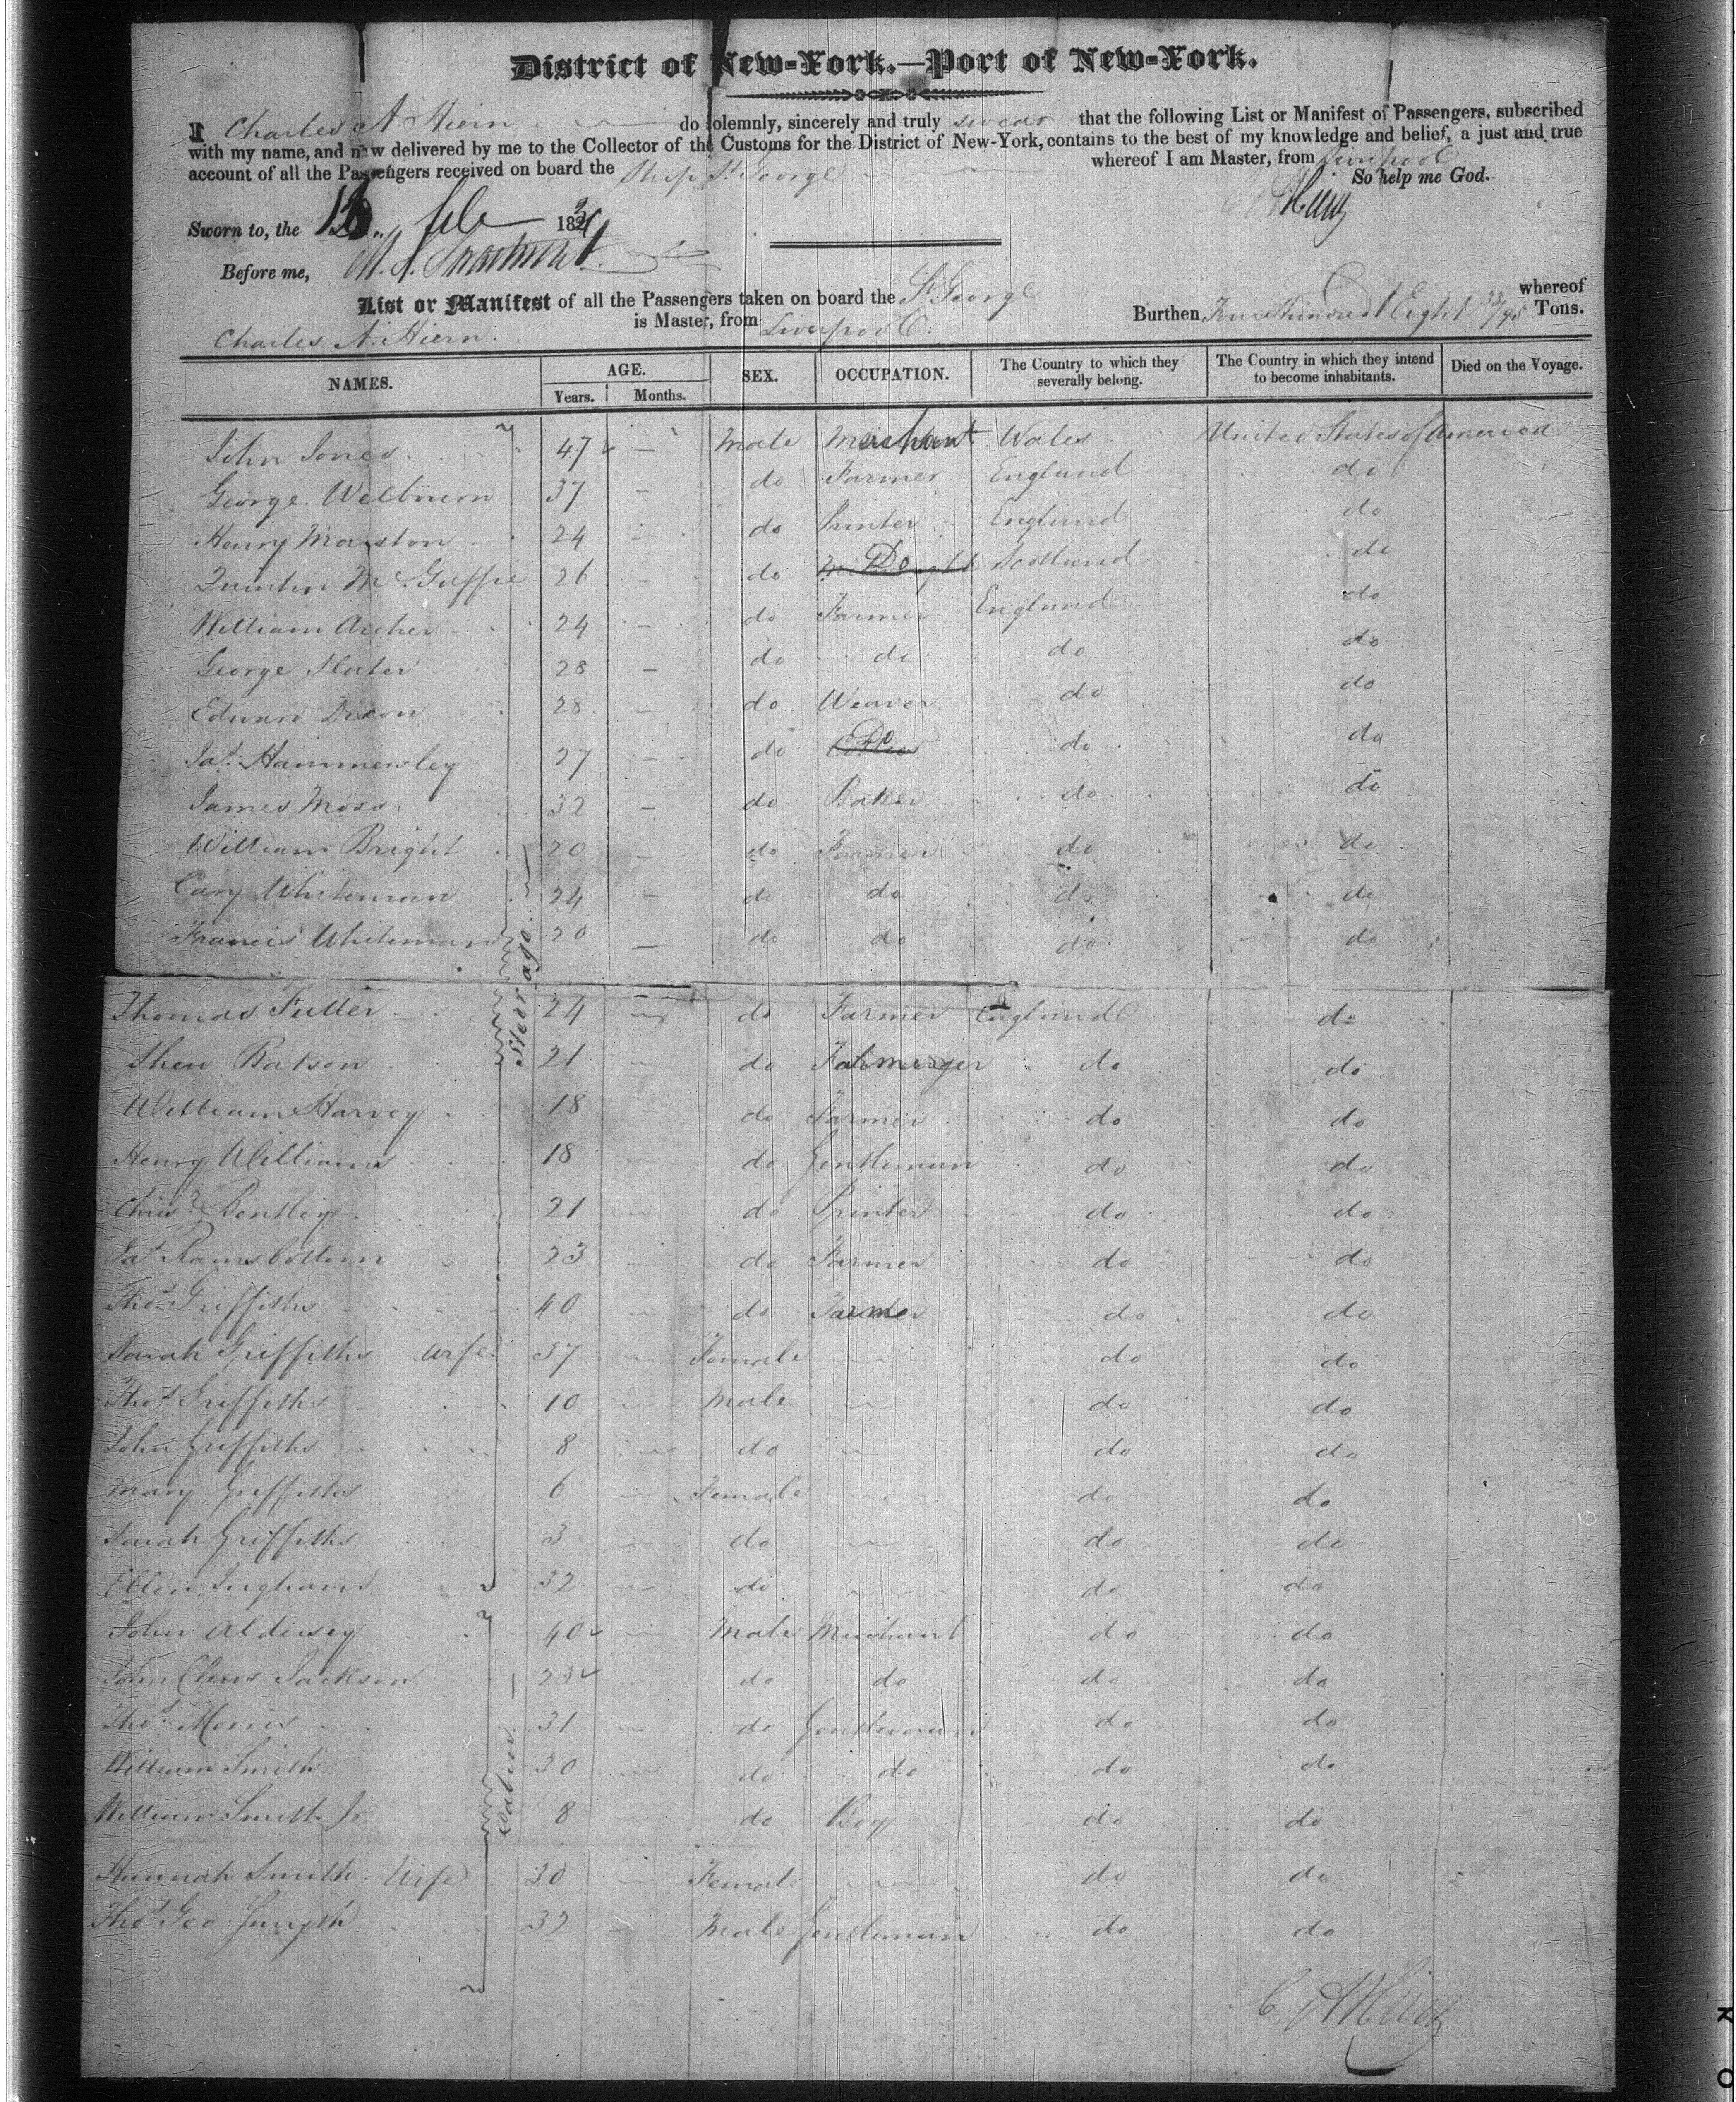 District of New-York.—Port of New-York.
I Charles A. Hiern do solemnly, sincerely and truly swear that the following List or Manifest of Passengers, subscribed
with my name, and now delivered by me to the Collector of the Customs for the District of New-York, contains to the best of my knowledge and belief, a just and true
account of all the Passengers received on board the Ship St George whereof I am Master, from Liverpool
So help me God.
Sworn to, the 183
Before me,
List or Manifest of all the Passengers taken on board the St George Burthen Four Hundred & Eight 33/95 Tons. whereof
Charles A. Hiern. is Master, from Liverpool.
NAMES. AGE. SEX. OCCUPATION. The Country to which they severally belong. The Country in which they intend to become inhabitants. Died on the Voyage.
Years. Months.
John Jones 47 — Male Merchant Wales United States of America
George Welbourn 37 — do Farmer England do
Henry Marston 24 — do Printer England do
Quintin McGuffie 26 — do Do Scotland do
William Archer 24 — do Farmer England do
George Slater 28 — do do do do
Edward Dixon 28 — do Weaver do do
Jas. Hammersley 27 — do Do do do
James Moss 32 — do Baker do do
William Bright 20 — do Farmer do do
Cary Whiteman 24 — do do do do
Francis Whiteman 20 — do do do do
Steerage
Thomas Fuller 24 — do Farmer England do
Batson 21 — do do do
William Harvey 18 do Farmer do do
Henry Williams 18 — do Gentleman do do
Chrisr. Bentley 21 — do Printer do do
Jas Ramsbottom 23 — do Farmer do do
Thos Griffiths 40 — do Farmer do do
Sarah Griffiths wife 37 — Female — do do
Thos Griffiths 10 — Male — do do
John Griffiths 8 — do — do do
Mary Griffiths 6 — Female — do do
Sarah Griffiths 3 — do — do do
Ellen Ingham 32 — do — do do
John Aldersey 40 — Male Merchant do do
John Clews Jackson 23 do do do do
Thos. Morris 31 — do Gentleman do do
Cabin
William Smith 30 — do do do do
William Smith Jr 8 — do Boy do do
Hannah Smith Wife 30 — Female — do do
Thos Geo. Smyth 32 — Male Gentleman do do
C A Hiern